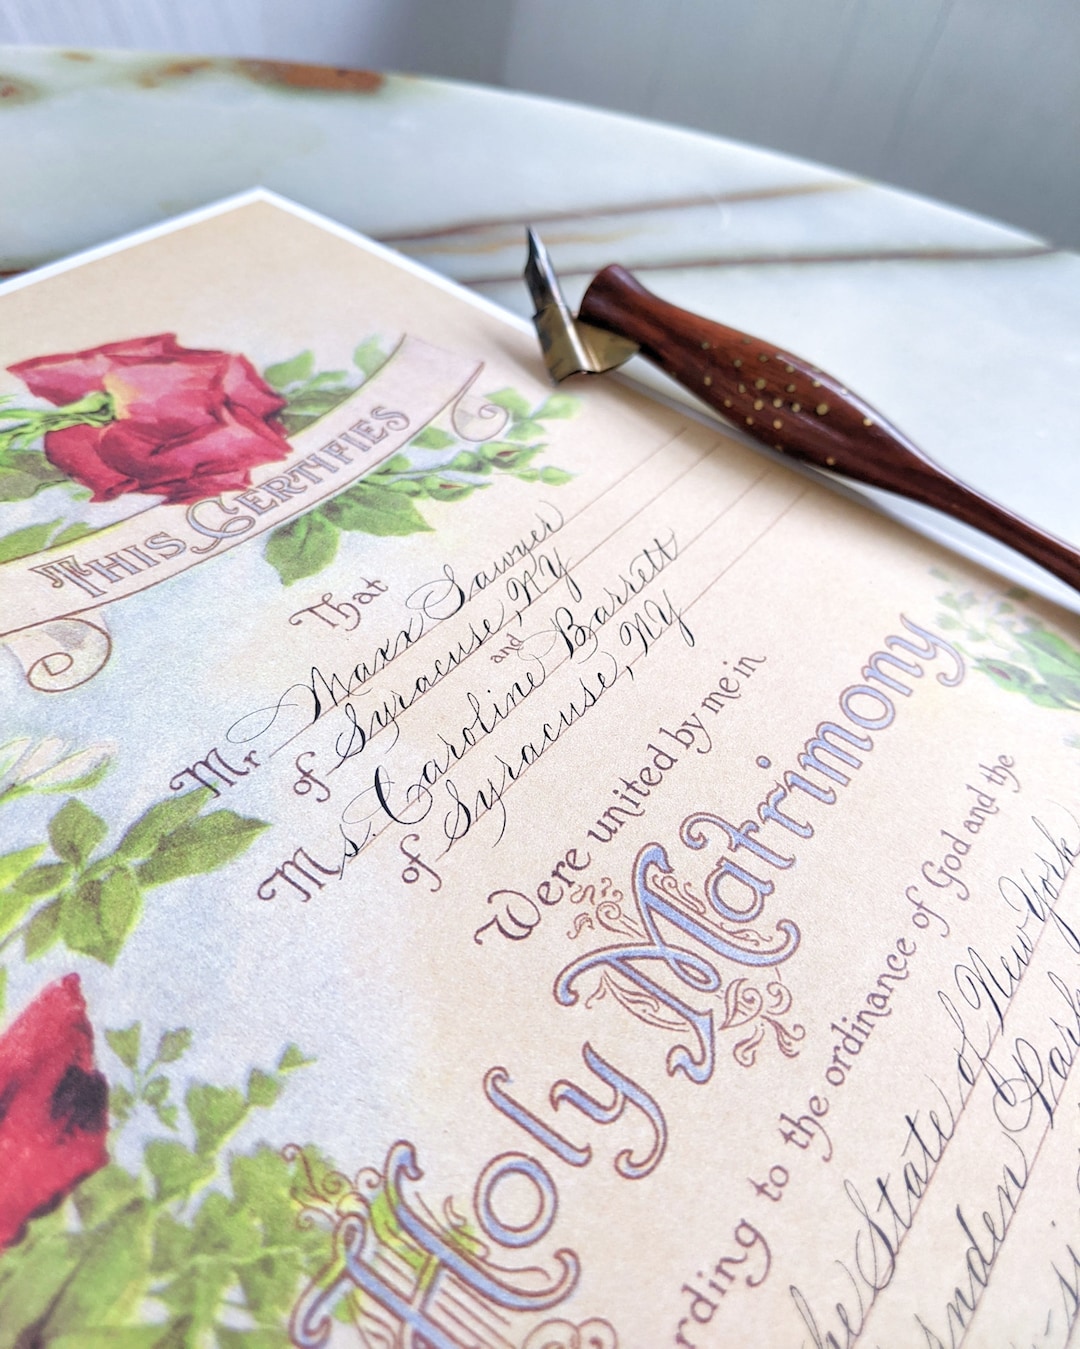 THIS CERTIFIES
That
Mr Maxx Sawyer
of Syracuse, NY
and
Ms. Caroline Barrett
of Syracuse, NY
Were united by me in
Holy Matrimony
rding to the ordinance of God and the
he State of New York
nden Park